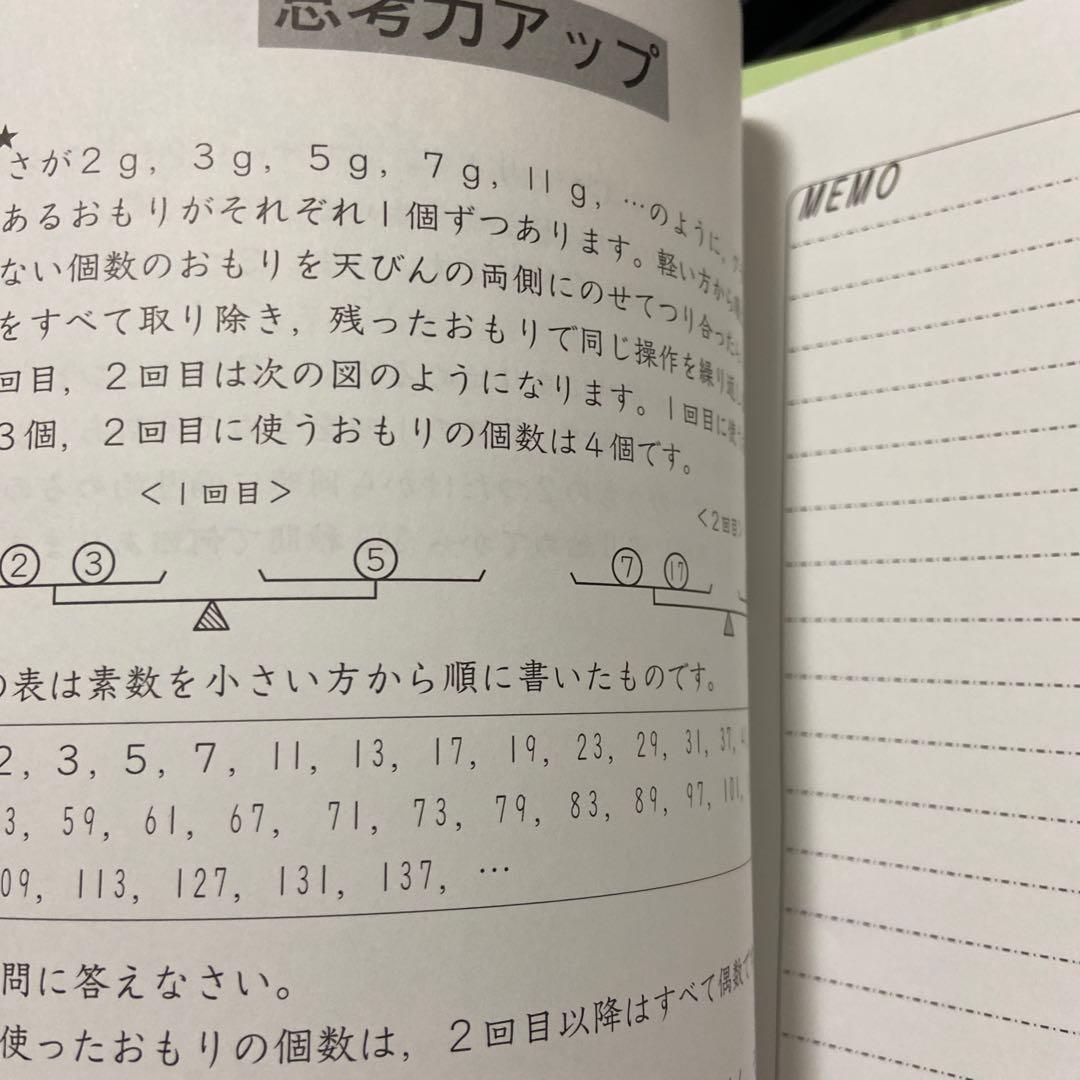 思考力アップ
★
さが2g, 3g, 5g, 7g, 11g, …のように,
あるおもりがそれぞれ1個ずつあります。軽い方から
ない個数のおもりを天びんの両側にのせてつり合った
をすべて取り除き, 残ったおもりで同じ操作を繰り返し
回目, 2回目は次の図のようになります。1回目に使う
3個, 2回目に使うおもりの個数は4個です。
<1回目>
<2回目>
② ③ ⑤ ⑦ ⑰
の表は素数を小さい方から順に書いたものです。
2, 3, 5, 7, 11, 13, 17, 19, 23, 29, 31, 37,
3, 59, 61, 67, 71, 73, 79, 83, 89, 97, 101,
09, 113, 127, 131, 137, …
問に答えなさい。
使ったおもりの個数は, 2回目以降はすべて偶数で
MEMO